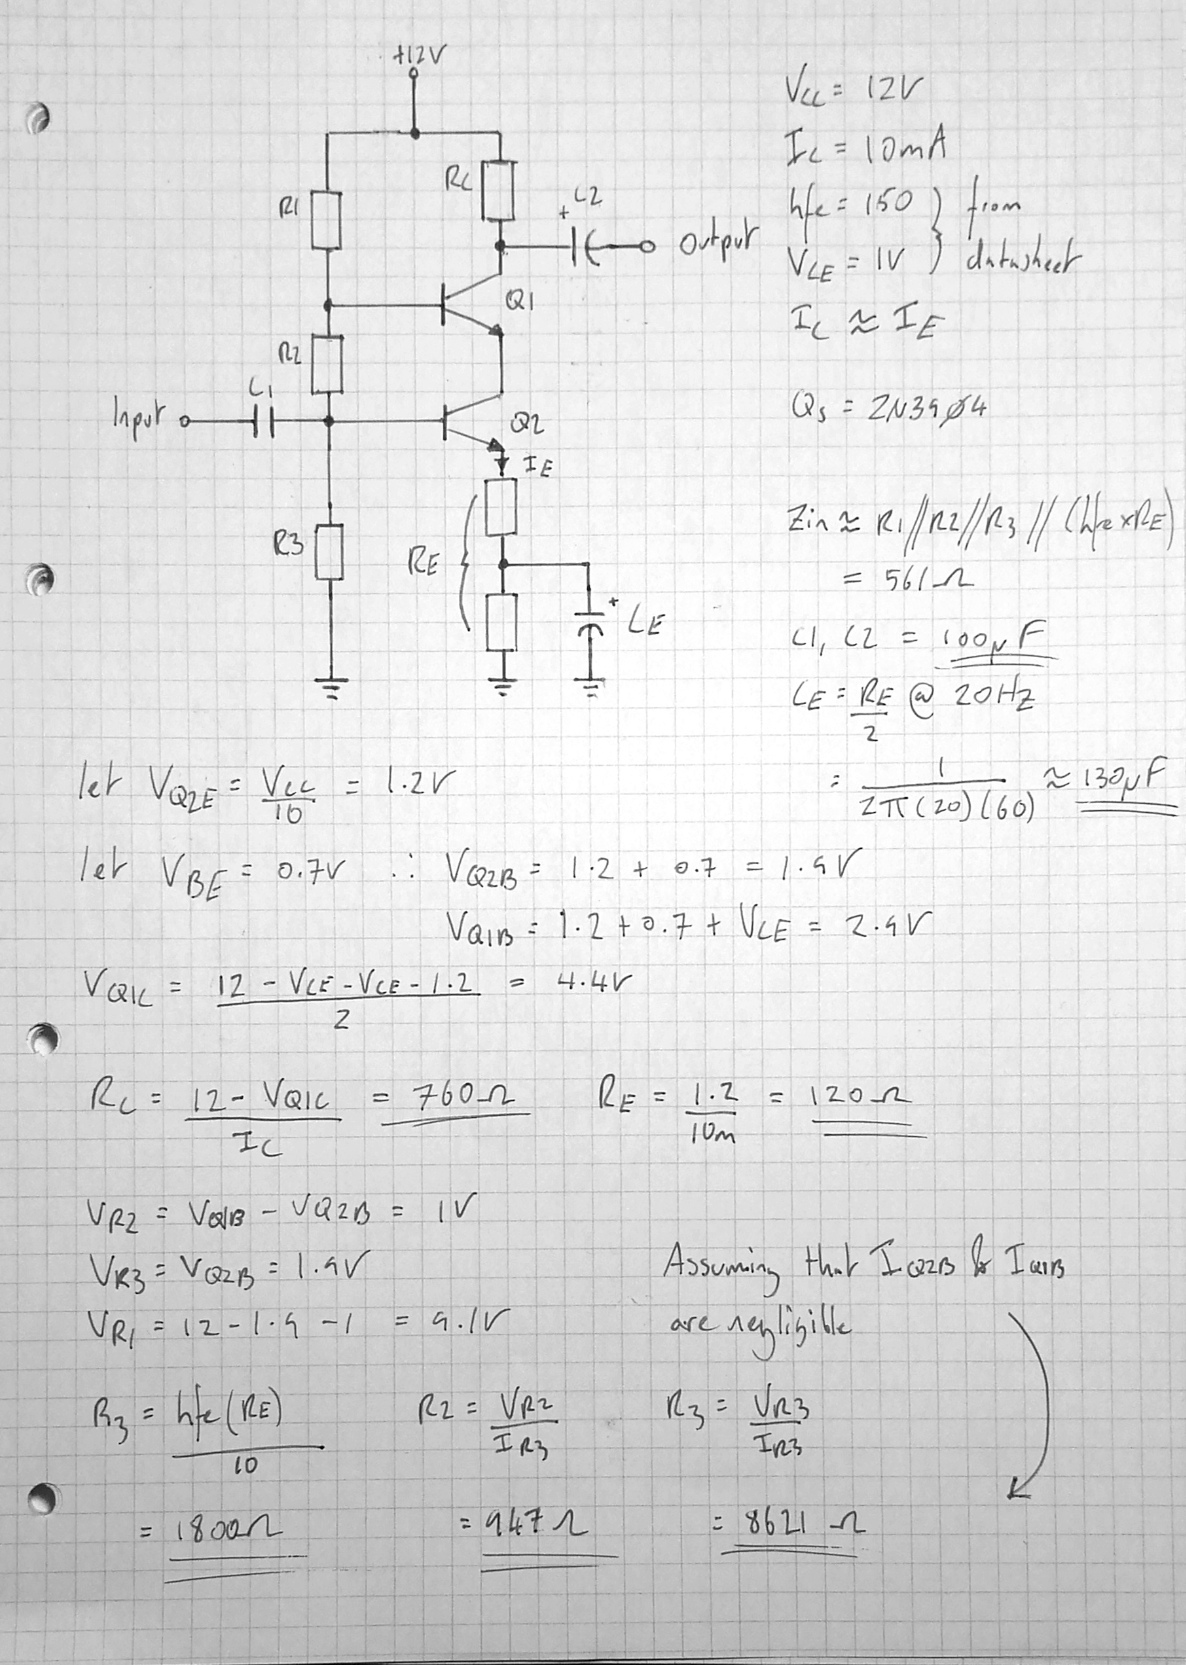 +12V
R1
RC
+
C2
Output
Q1
R2
C1
Input
Q2
IE
R3
RE
+
CE
VCC = 12V
IC = 10mA
hfe = 150 } from
VCE = 1V } datasheet
IC ≈ IE
Qs = 2N39Ø4
Zin ≈ R1//R2//R3//(hfe×RE)
= 561Ω
C1, C2 = 100μF
CE = RE/2 @ 20Hz
= 1/2π(20)(60) ≈ 130μF
let VQ2E = VCC/10 = 1.2V
let VBE = 0.7V ∴ VQ2B = 1.2 + 0.7 = 1.9V
VQ1B = 1.2 + 0.7 + VCE = 2.9V
VQ1C = 12 - VCE - VCE - 1.2/2 = 4.4V
RC = 12 - VQ1C/IC = 760Ω
RE = 1.2/10m = 120Ω
VR2 = VQ1B - VQ2B = 1V
VR3 = VQ2B = 1.9V
VR1 = 12 - 1.9 - 1 = 9.1V
Assuming that IQ2B & IQ1B
are negligible
R3 = hfe(RE)/10
= 1800Ω
R2 = VR2/IR3
= 947Ω
R3 = VR3/IR3
= 8621Ω